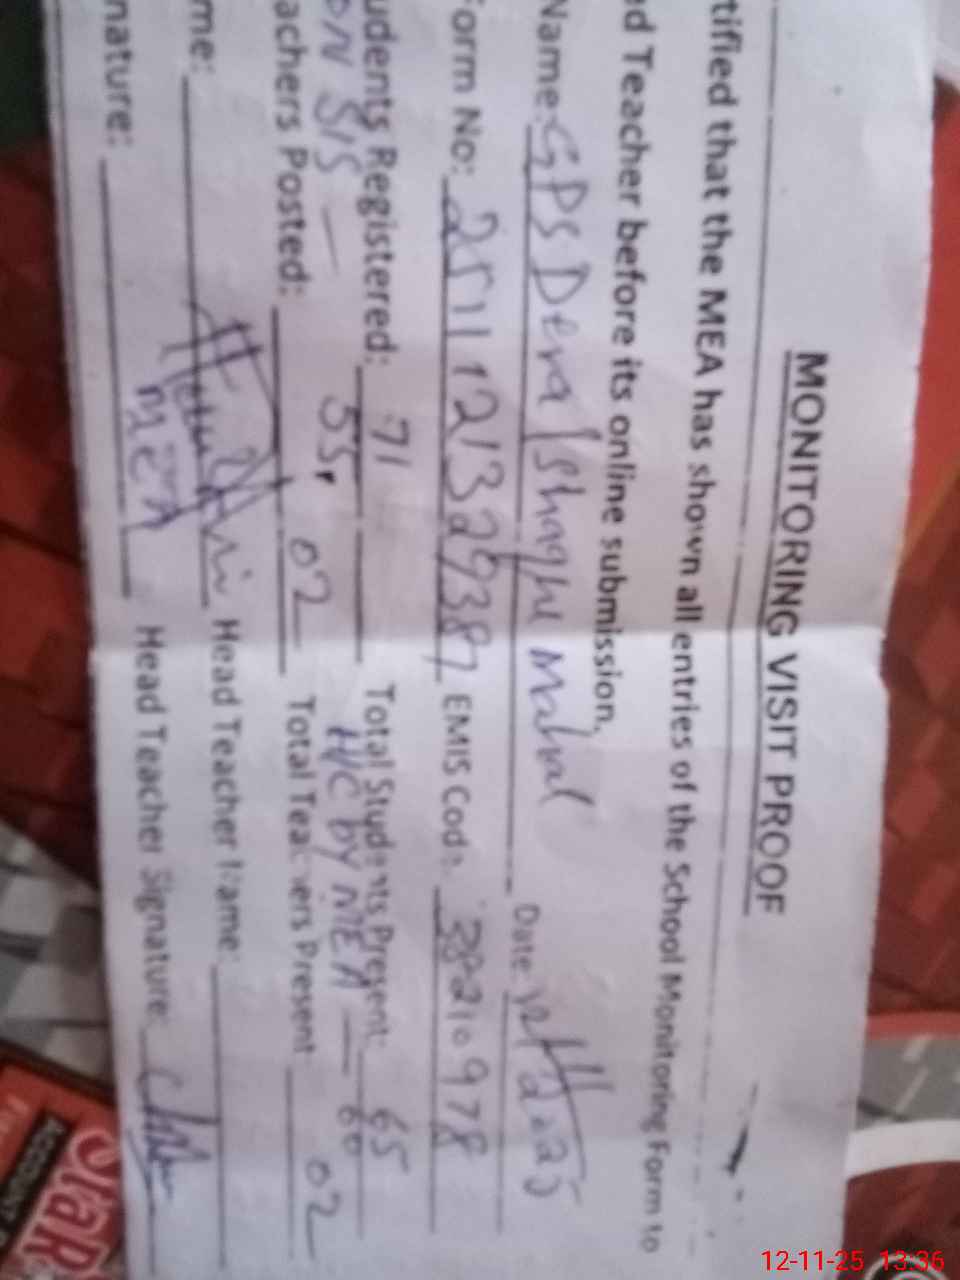 MONITORING VISIT PROOF
tified that the MEA has shown all entries of the School Monitoring Form to
d Teacher before its online submission.
Name: GPS Dera Ishaque Mahal Date: 12/11/2025
Form No: 2511121329387 EMIS Code: 38210978
udents Registered: 71 Total Students Present: 65
ON SIS — 55, H/C BY MEA — 60
achers Posted: 02 Total Teachers Present 02
me: Head Teacher Name:
MEA
nature: Head Teacher Signature
OfaR
ACCOUNT
12-11-25 13:36